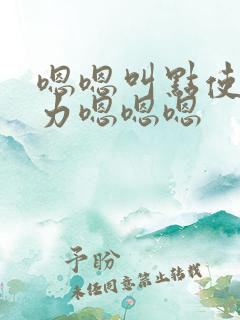 嗯嗯叫點使
力嗯嗯嗯
予盼
未经同意禁止转载